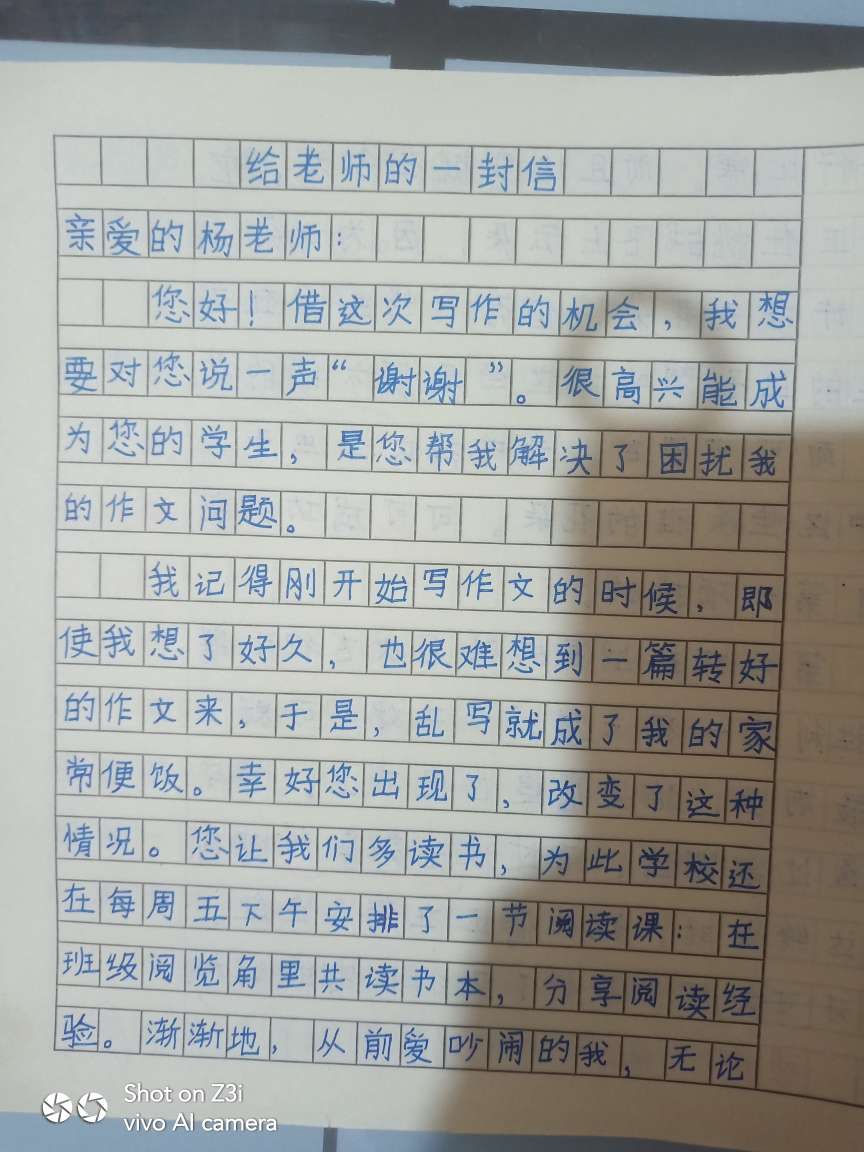 给老师的一封信
亲爱的杨老师：
您好！借这次写作的机会，我想
要对您说一声“谢谢”。很高兴能成
为您的学生，是您帮我解决了困扰我
的作文问题。
我记得刚开始写作文的时候，即
使我想了好久，也很难想到一篇转好
的作文来，于是，乱写就成了我的家
常便饭。幸好您出现了，改变了这种
情况。您让我们多读书，为此学校还
在每周五下午安排了一节阅读课：在
班级阅览角里共读书本，分享阅读经
验。渐渐地，从前爱吵闹的我，无论
Shot on Z3i
vivo AI camera